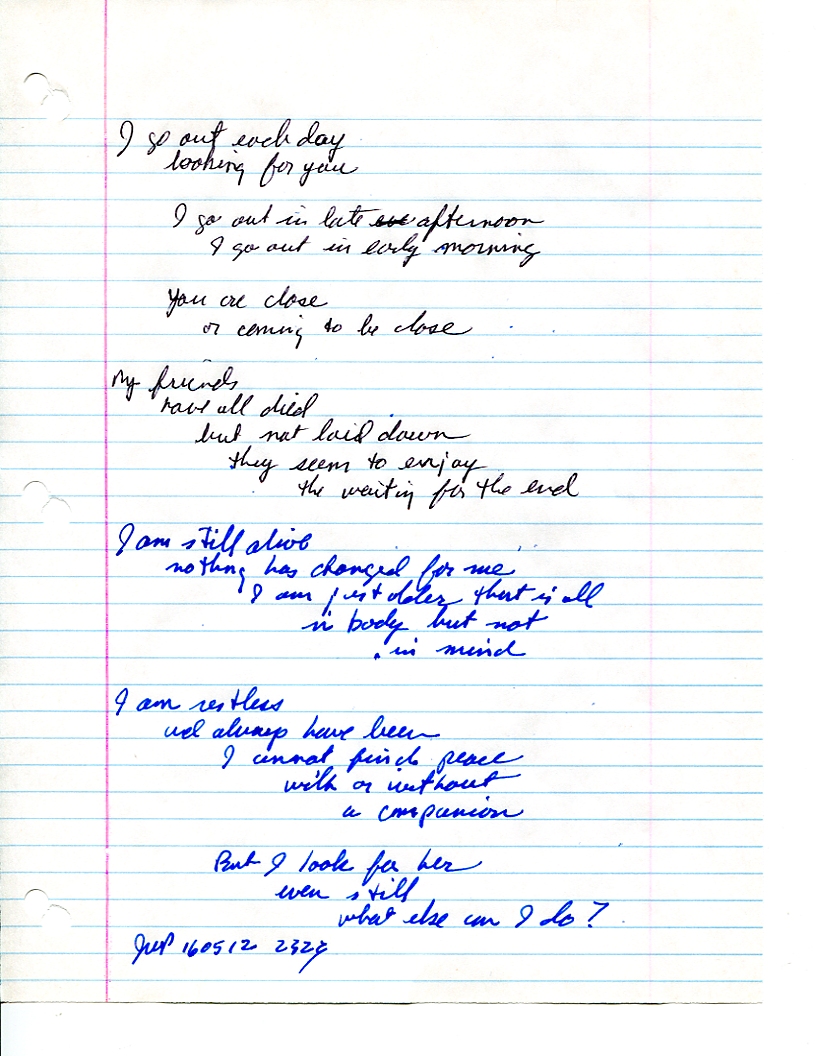 I go out each day
looking for you
I go out in late afternoon
I go out in early morning
You are close
or coming to be close
My friends
have all died
but not laid down
they seem to enjoy
the waiting for the end
I am still alive
nothing has changed for me
I am just older that is all
in body but not
in mind
I am restless
and always have been
I cannot find peace
with or without
a companion
But I look for her
even still
what else can I do?
160512